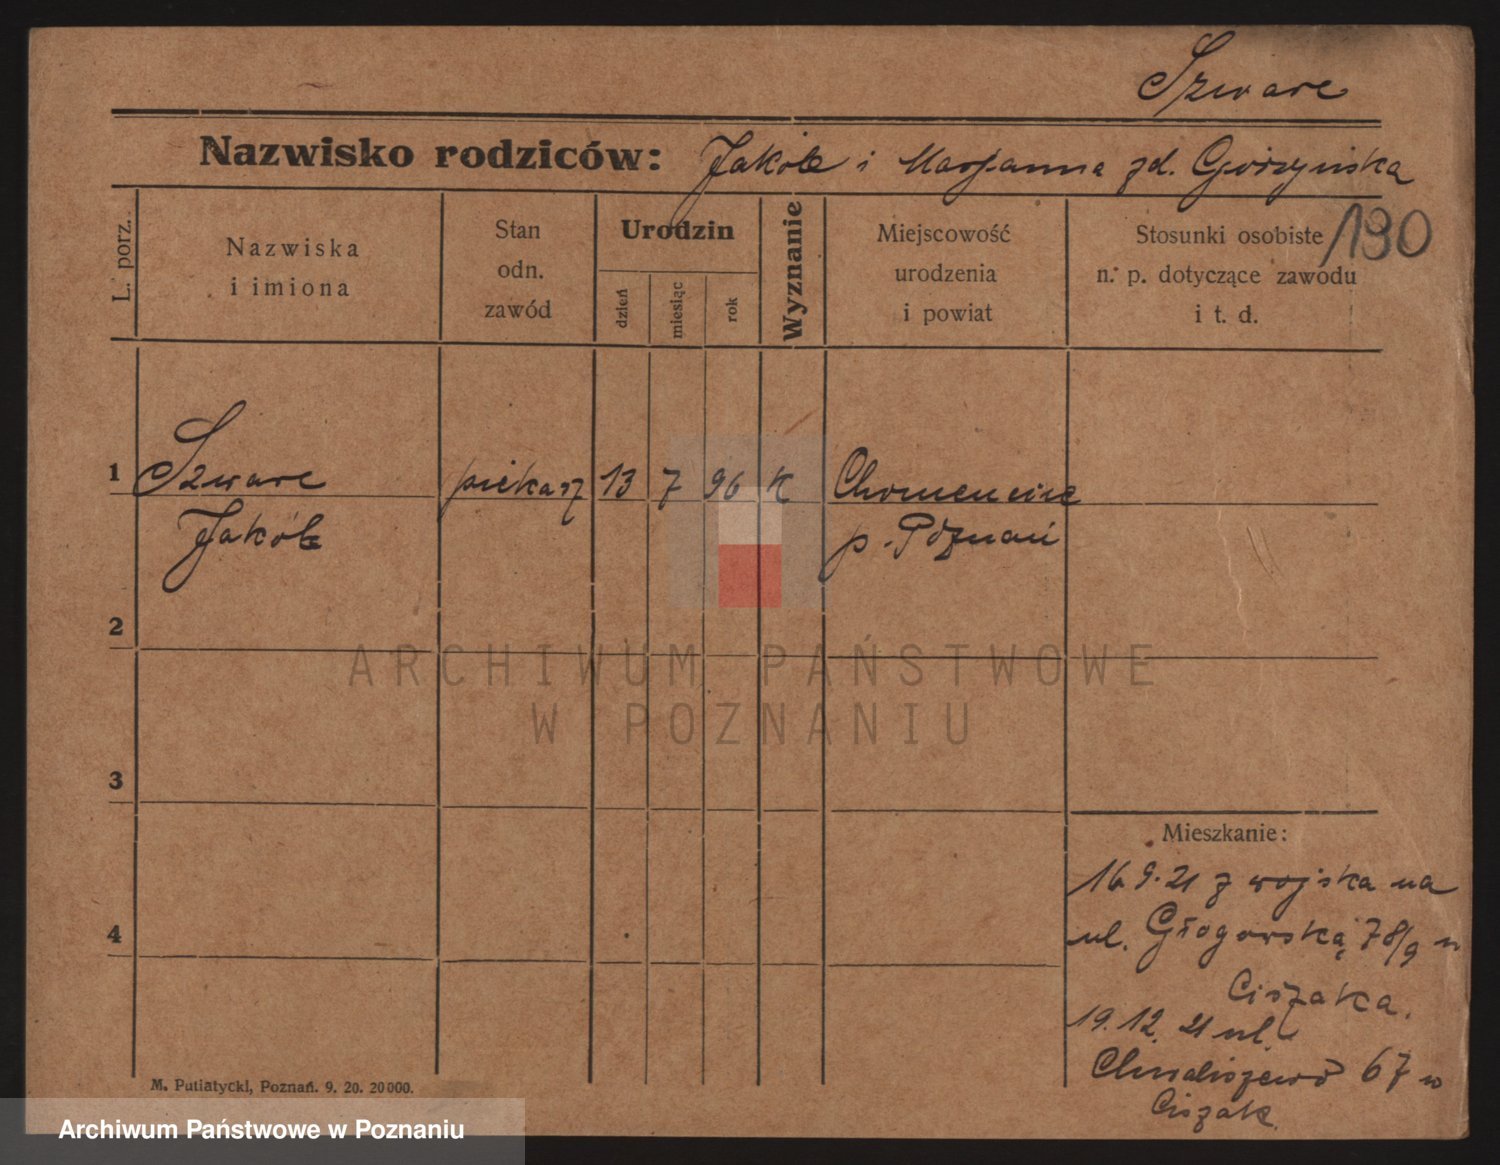 Szwarc
Nazwisko rodziców: Jakób i Marjanna zd. Górzyńska
190
L. porz.
Nazwiska
i imiona
Stan
odn.
zawód
Urodzin
dzień
miesiąc
rok
Wyznanie
Miejscowość
urodzenia
i powiat
Stosunki osobiste
n. p. dotyczące zawodu
i t. d.
1 Szwarc piekarz 13 7 96 K Chomencice
Jakób p. Poznań
2
ARCHIWUM PAŃSTWOWE
W POZNANIU
3
Mieszkanie:
16.9.21 z wojska na
4
ul. Głogowską 78/9 u
Ciszaka.
19.12.21 ul.
Chwaliszewo 67 u
Ciszak
M. Putiatycki, Poznań. 9. 20. 20000.
Archiwum Państwowe w Poznaniu